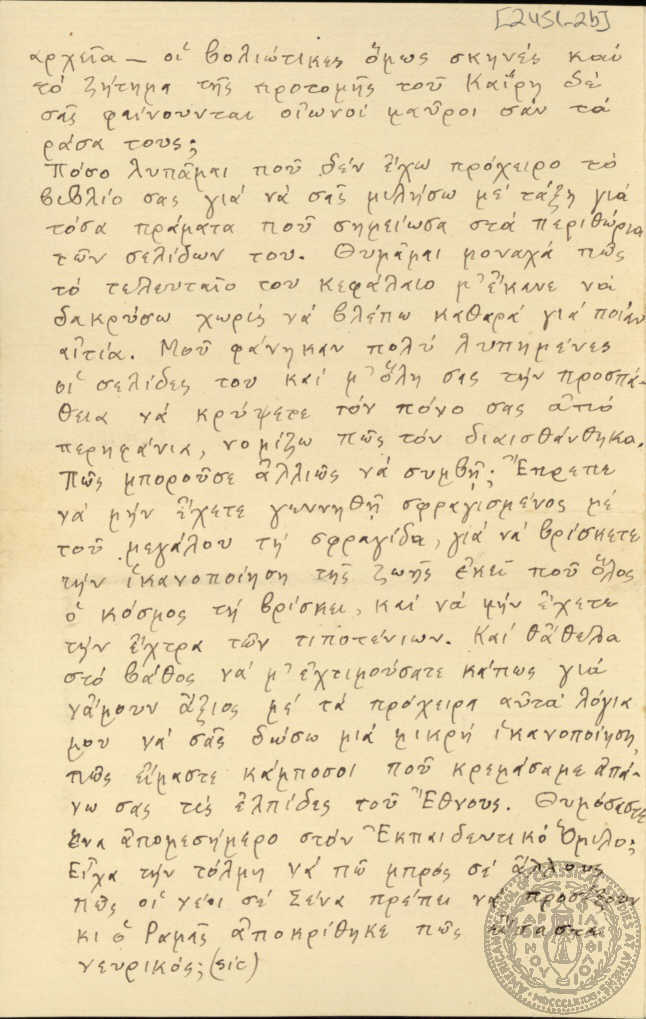 [245(-2b]
αρχεῖα — οἱ βολιώτικες ὅμως σκηνές καί
τό ζήτημα τῆς προτομῆς τοῦ Καΐρη δέ
σᾶς φαίνουνται οἰωνοί μαῦροι σάν τά
ράσα τους;
Πόσο λυπᾶμαι πού δέν ἔχω πρόχειρο τό
βιβλίο σας γιά νά σᾶς μιλήσω μέ τάξη γιά
τόσα πράματα πού σημείωσα στά περιθώρια
τῶν σελίδων του. Θυμᾶμαι μοναχά πῶς
τό τελευταῖο του κεφάλαιο μ' ἔκανε νά
δακρύσω χωρίς νά βλέπω καθαρά γιά ποιάν
αἰτία. Μοῦ φάνηκαν πολύ λυπημένες
οἱ σελίδες του καί μ' ὅλη σας τήν προσπά-
θεια νά κρύψετε τόν πόνο σας ἀπό
περηφάνια, νομίζω πῶς τόν διαισθάνθηκα.
Πῶς μποροῦσε ἀλλιῶς νά συμβῆ; Ἔπρεπε
νά μήν εἴχετε γεννηθῆ σφραγισμένος μέ
τοῦ μεγάλου τή σφραγίδα, γιά νά βρίσκετε
τήν ἱκανοποίηση τῆς ζωῆς ἐκεῖ πού ὅλος
ὁ κόσμος τή βρίσκει, καί νά μήν εἴχετε
τήν ἔχτρα τῶν τιποτένιων. Καί θἄθελα
στό βάθος νά μ' ἐχτιμούσατε κάπως γιά
νἄμουν ἄξιος μέ τά πρόχειρα αὐτά λόγια
μου νά σᾶς δώσω μιά μικρή ἱκανοποίηση,
πῶς εἴμαστε κάμποσοι πού κρεμάσαμε ἀπά-
νω σας τίς ἐλπίδες τοῦ Ἔθνους. Θυμόσαστε
ἕνα ἀπομεσήμερο στόν Ἐκπαιδευτικό Ὅμιλο;
Εἶχα τήν τόλμη νά πῶ μπρός σέ ἄλλους
πῶς οἱ νέοι σέ Σένα πρέπει νά προσέξουν
κι ὁ Ραμᾶς ἀποκρίθηκε πῶς εἴσαστε
νευρικός; (sic)
AMERICAN SCHOOL OF CLASSICAL STUDIES AT ATHENS
MDCCCLXXXI